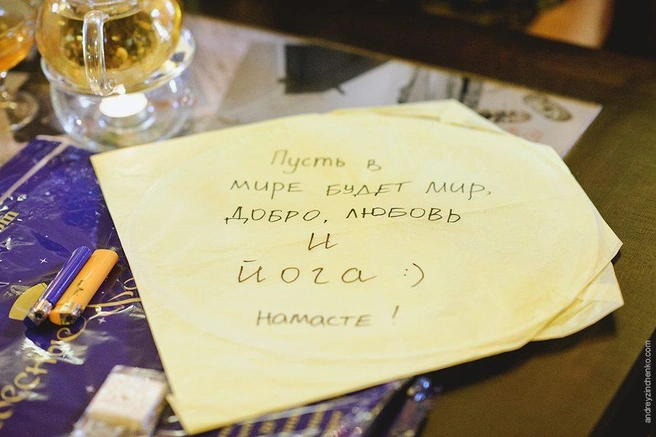 Пусть в
мире будет мир,
добро, любовь
и
йога :)
намасте!
andreyzinchenko.com